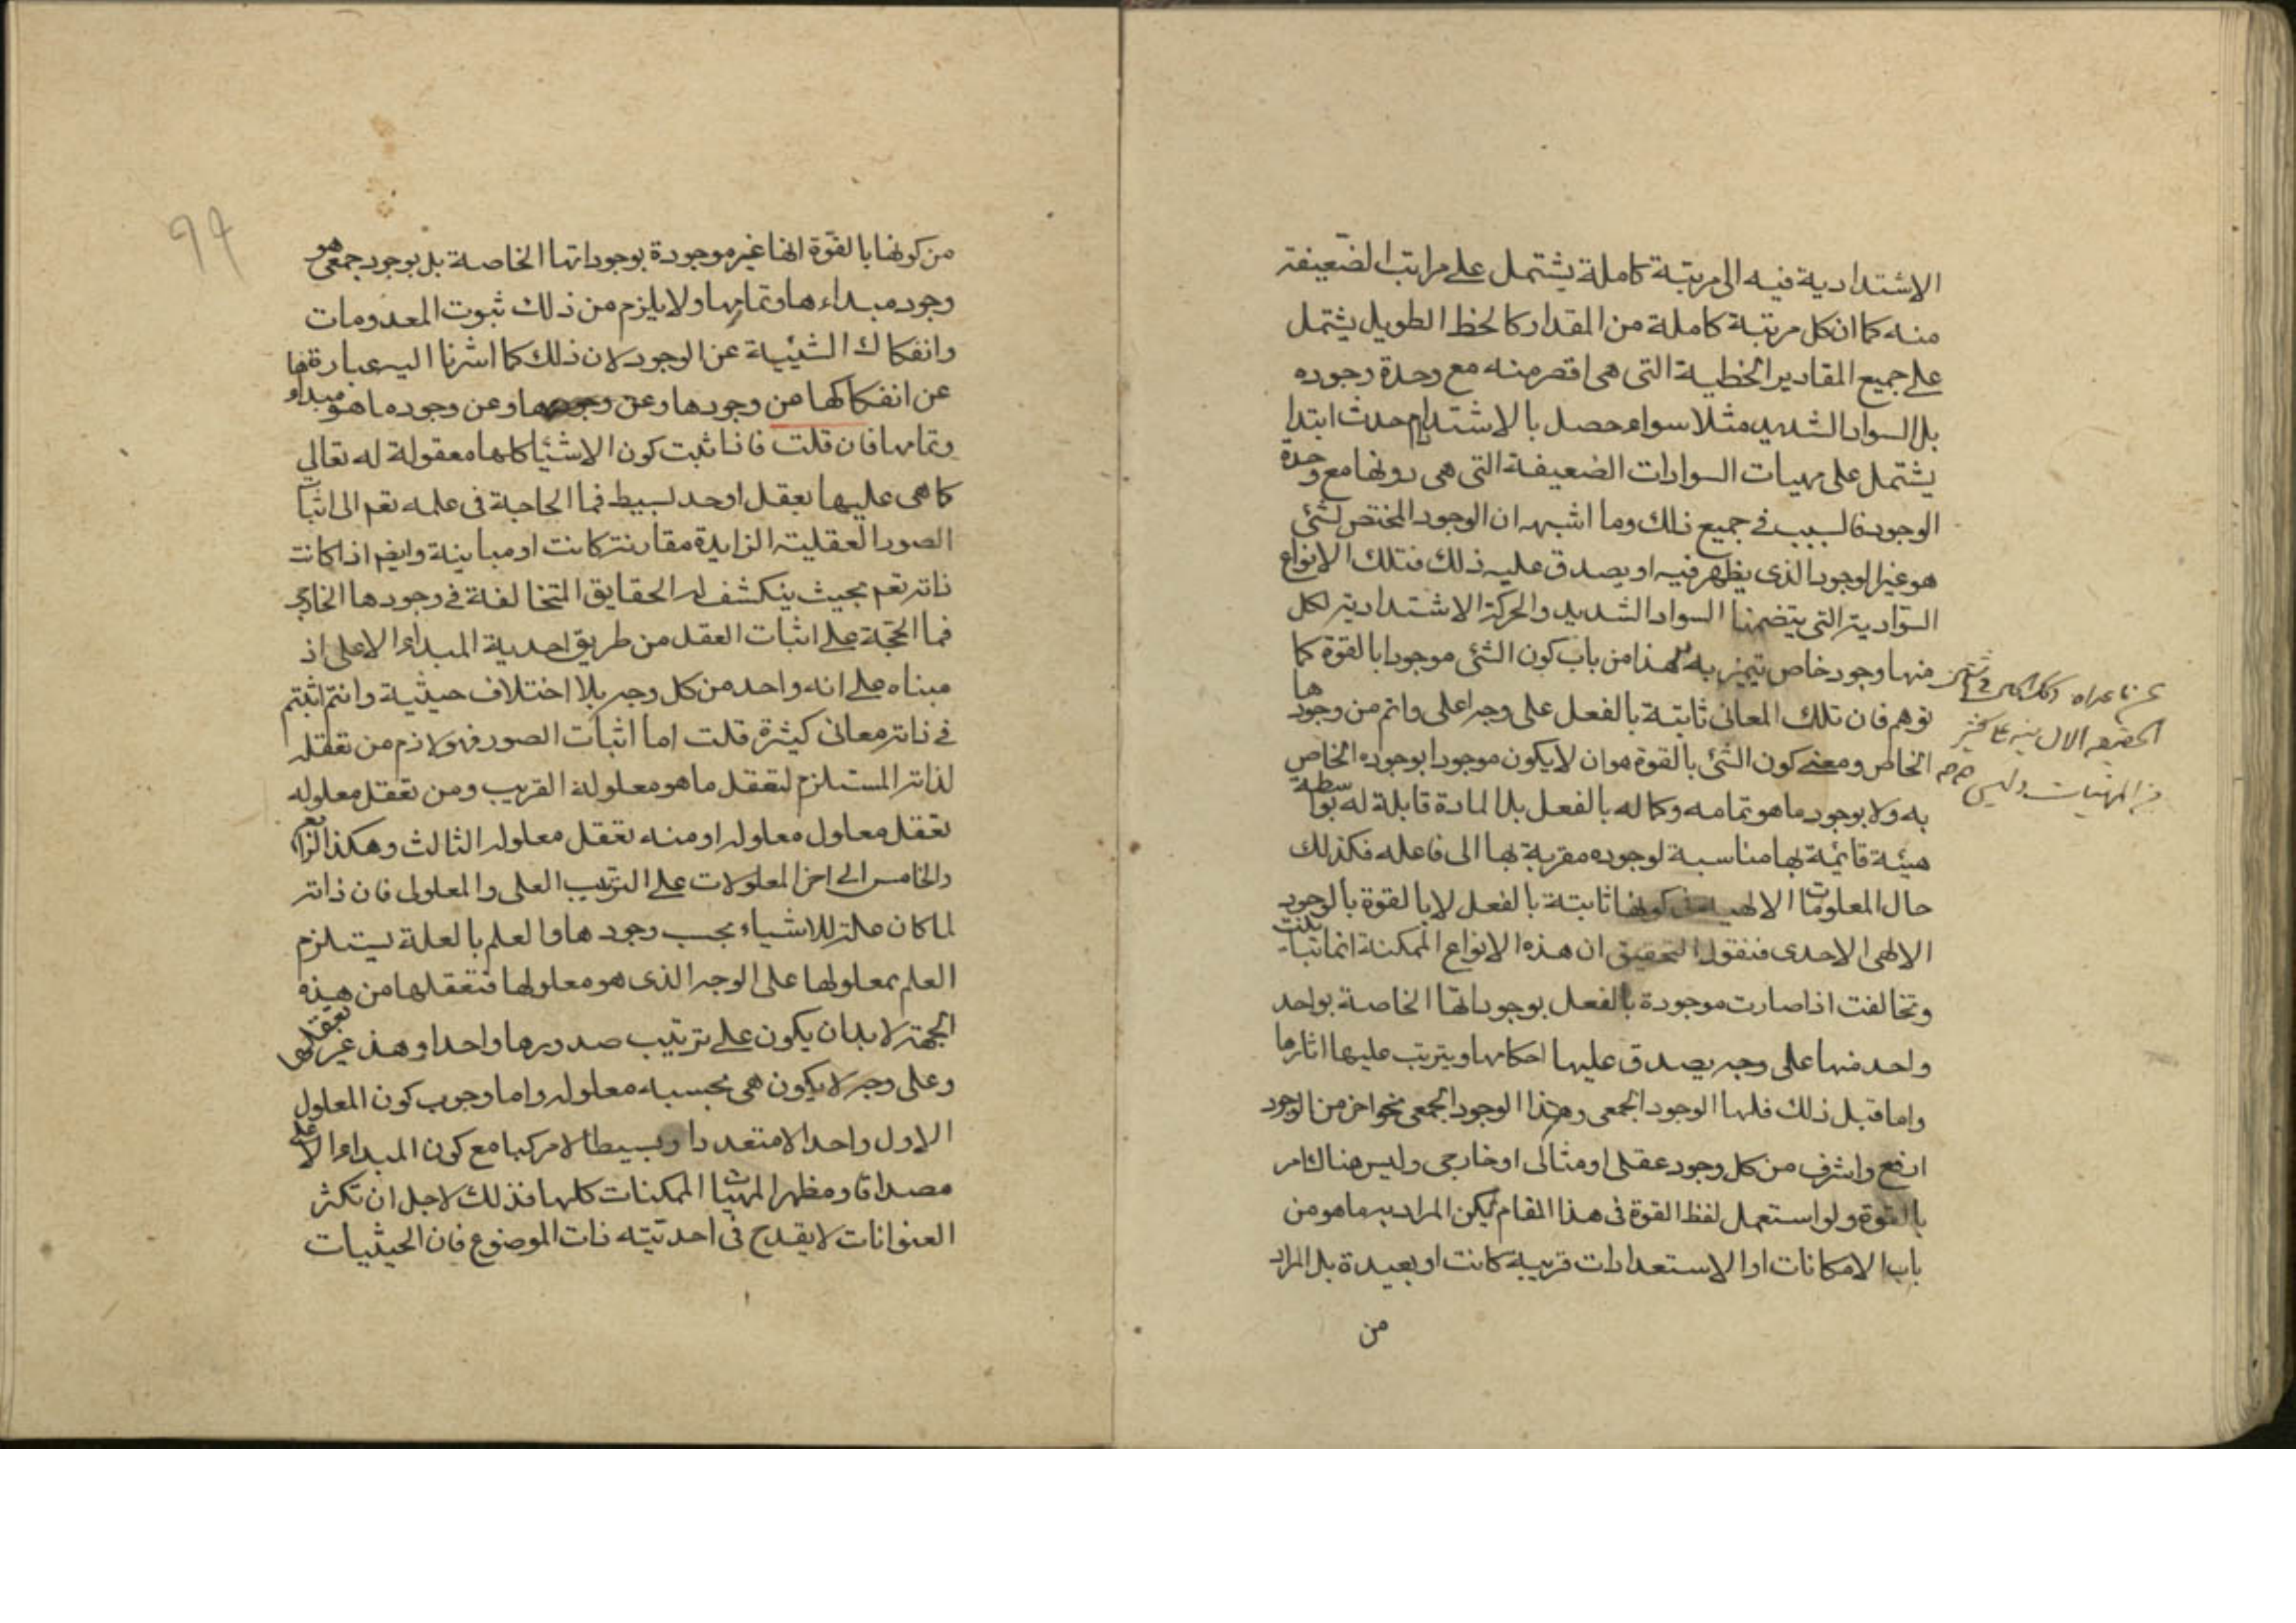 الاشتدادية فيه الى مرتبة كاملة يشتمل على مراتب الضعيفة
منه كما ان كل مرتبة كاملة من المقدار كالخط الطويل يشتمل
على جميع المقادير الخطية التى هى اقصر منه مع وحدة وجوده
بل السواد الشديد مثلا سواء حصل بالاشتداد ام حدث ابتدا
يشتمل على مهيات السوادات الضعيفة التى هى دونها مع وحدة
الوجود فالسبب فى جميع ذلك وما اشبهه ان الوجود المختص لشئ
هو غير الوجود الذى يظهر فيه او يصدق عليه ذلك فتلك الانواع
السوادية التى يتضمنها السواد الشديد والحركة الاشتدادية لكل
منها وجود خاص يتميز به هذا من باب كون الشئ موجودا بالقوة كما
توهم فان تلك المعانى ثابتة بالفعل على وجه اعلى واتم من وجودها
الخاص ومعنى كون الشئ بالقوة هو ان لا يكون موجودا بوجوده الخاص
به ولا بوجود ما هو تمامه وكماله بالفعل بل المادة قابلة له بواسطة
هيئة قائمة بها مناسبة لوجوده مقربة بها الى فاعله فكذلك
حال المعلومات الالهية من كونها ثابتة بالفعل لا بالقوة بالوجود
الالهى الاحدى فنقول التحقيق ان هذه الانواع الممكنة انما تباينت
وتخالفت اذا صارت موجودة بالفعل بوجوداتها الخاصة بواحد
واحد منها على وجه يصدق عليها احكامها ويترتب عليها اثارها
واما قبل ذلك فلها الوجود الجمعى وهذا الوجود الجمعى نحو اخر من الوجود
ارفع واشرف من كل وجود عقلى او مثالى او خارجى وليس هناك امر
بالقوة ولو استعمل لفظ القوة فى هذا المقام لم يكن المراد به ما هو من
باب الامكانات او الاستعدادات قريبة كانت او بعيدة بل المراد
من
من المهيات وليس
99
من كونها بالقوة انها غير موجودة بوجوداتها الخاصة بل بوجود جمعى هو
وجود مبداءها وتمامها ولا يلزم من ذلك ثبوت المعدومات
وانفكاك الشيئية عن الوجود لان ذلك كما اشرنا اليه عبارة
عن انفكاكها من وجودها وعن وجود ما هو مبداؤها
وتمامها فان قلت فاذا ثبت كون الاشيا كلها معقولة له تعالى
كما هى عليها بعقل واحد بسيط فما الحاجة فى علمه تعم الى اثبات
الصور العقلية الزايدة مقارنة كانت او مباينة وايضم اذا كانت
ذاته تعم بحيث ينكشف له الحقايق المتخالفة فى وجودها الخارجى
فما الحجة على اثبات العقل من طريق احدية المبداء الاعلى اذ
مبناه على انه واحد من كل وجه بلا اختلاف حيثية وانتم اثبتم
فى ذاته معانى كثيرة قلت اما اثبات الصور فهو لازم من تعقله
لذاته المستلزم لتعقل ما هو معلوله القريب ومن تعقل معلوله
تعقل معلول معلوله ومنه تعقل معلوله الثالث وهكذا الرابع
والخامس الى اخر المعلولات على الترتيب العلى والمعلولى فان ذاته
لما كان علة للاشياء بحسب وجودها والعلم بالعلة يستلزم
العلم بمعلولها على الوجه الذى هو معلولها فتعقلها من هذه
الجهة لا بد ان يكون على ترتيب صدورها واحدا وهذ غير تعقلها
وعلى وجه لا يكون هى بحسبه معلوله واما وجوب كون المعلول
الاول واحدا لا متعددا وبسيطا لا مركبا مع كون المبداء الاعلى
مصداقا ومظهرا لمهيات الممكنات كلها فذلك لاجل ان تكثر
العنوانات لا يقدح فى احديته ذات الموضوع فان الحيثيات